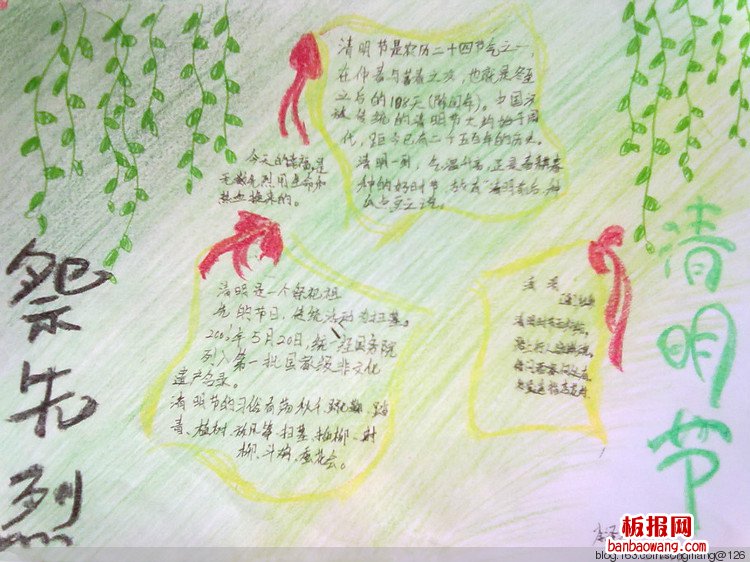 清明节是农历二十四节气之一,
在仲春与暮春之交,也就是冬至
之后的108天(除闰年)。中国汉
族传统的清明节大约始于周
代,距今已有二千五百年的历史。
清明一到,气温升高,正是春耕春
种的好时节,故有"清明前后,种
瓜点豆之说。
今天的幸福是
无数先烈用生命和
热血换来的。
清明是一个祭祀祖
先的节日,传统活动为扫墓。
2006年5月20日,
列入第一批国家级非文化
遗产名录。
清明节的习俗有荡秋千、蹴鞠、踏
青、植树、放风筝、扫墓、插柳、射
柳、斗鸡、蚕花会。
清明
祭先烈
清明节
板报网
banbaowang.com
blog.163.com/songmang@126